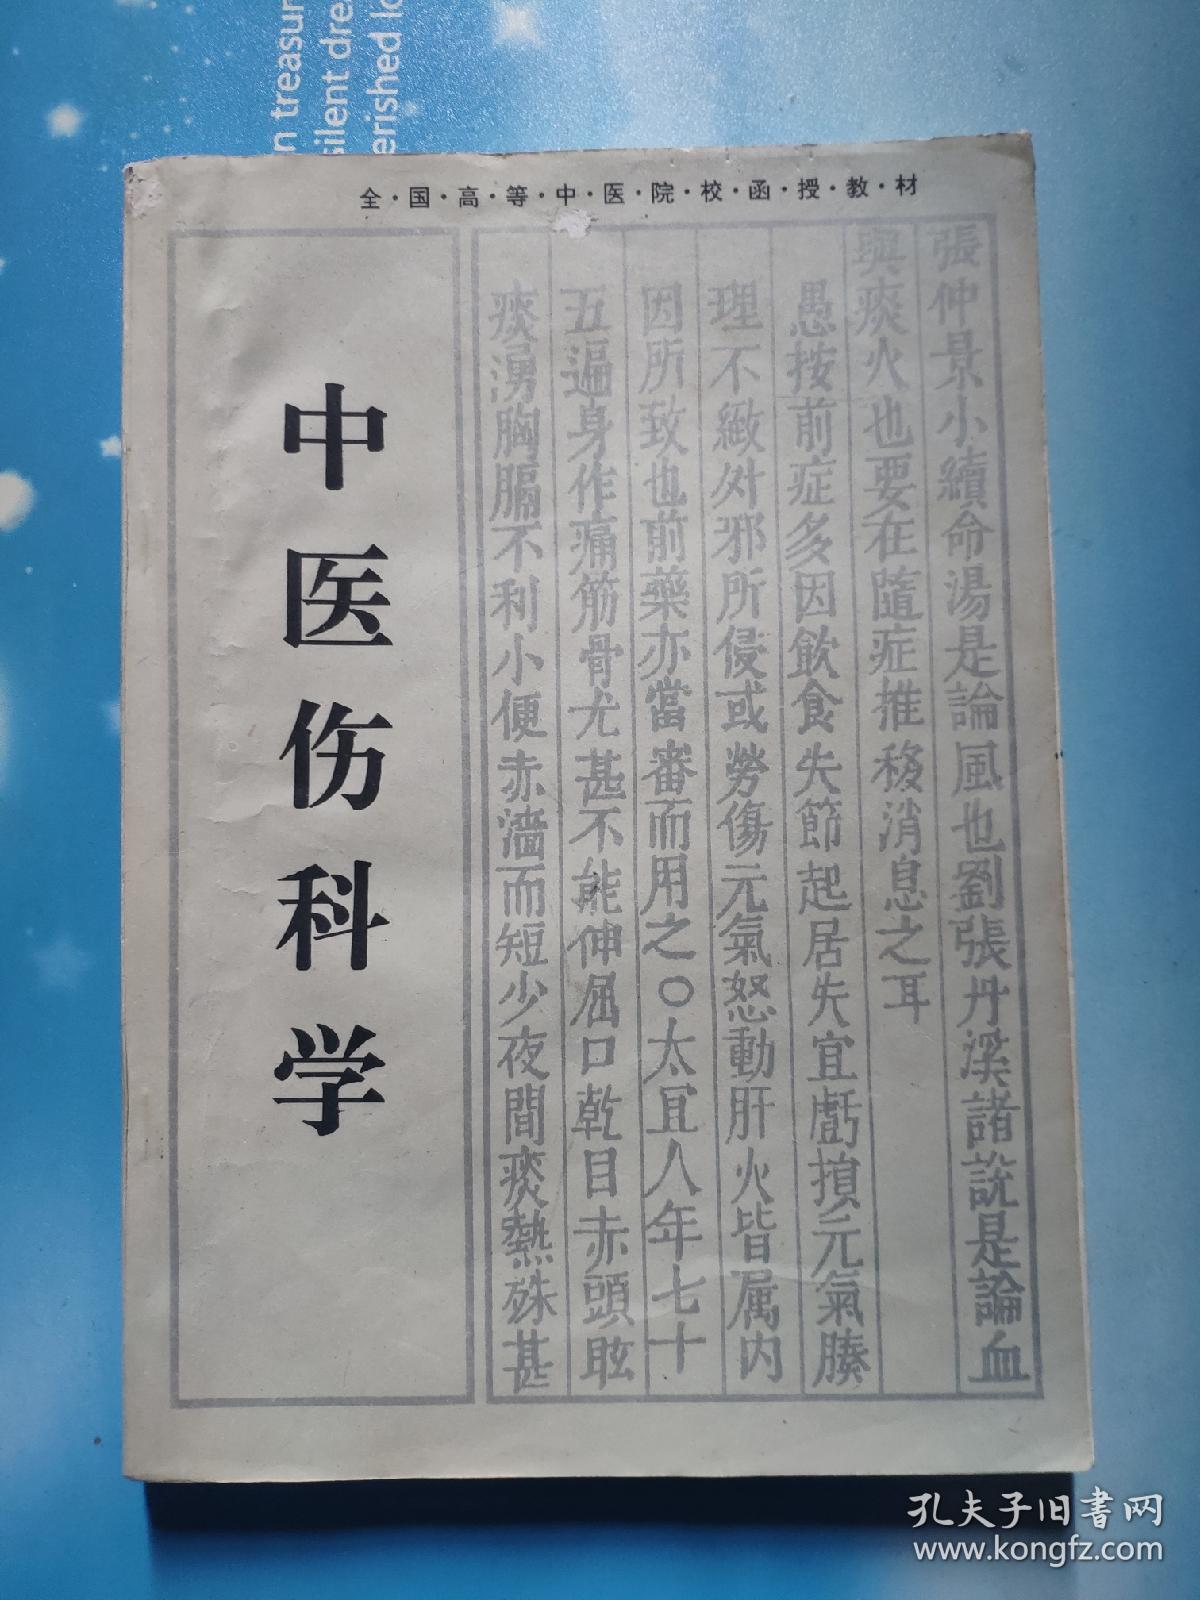 n treasur
silent dre
erished lo
全·国·高·等·中·医·院·校·函·授·教·材
中医伤科学
張仲景小續命湯是論風也劉張丹溪諸說是論血
與痰火也要在隨症推移消息之耳
愚按前症多因飲食失節起居失宜虧損元氣腠
理不緻外邪所侵或勞傷元氣怒動肝火皆属内
因所致也前藥亦當審而用之○太宜人年七十
五遍身作痛筋骨尤甚不能伸屈口乾目赤頭眩
痰湧胸膈不利小便赤濇而短少夜間痰熱殊甚
孔夫子旧书网
www.kongfz.com